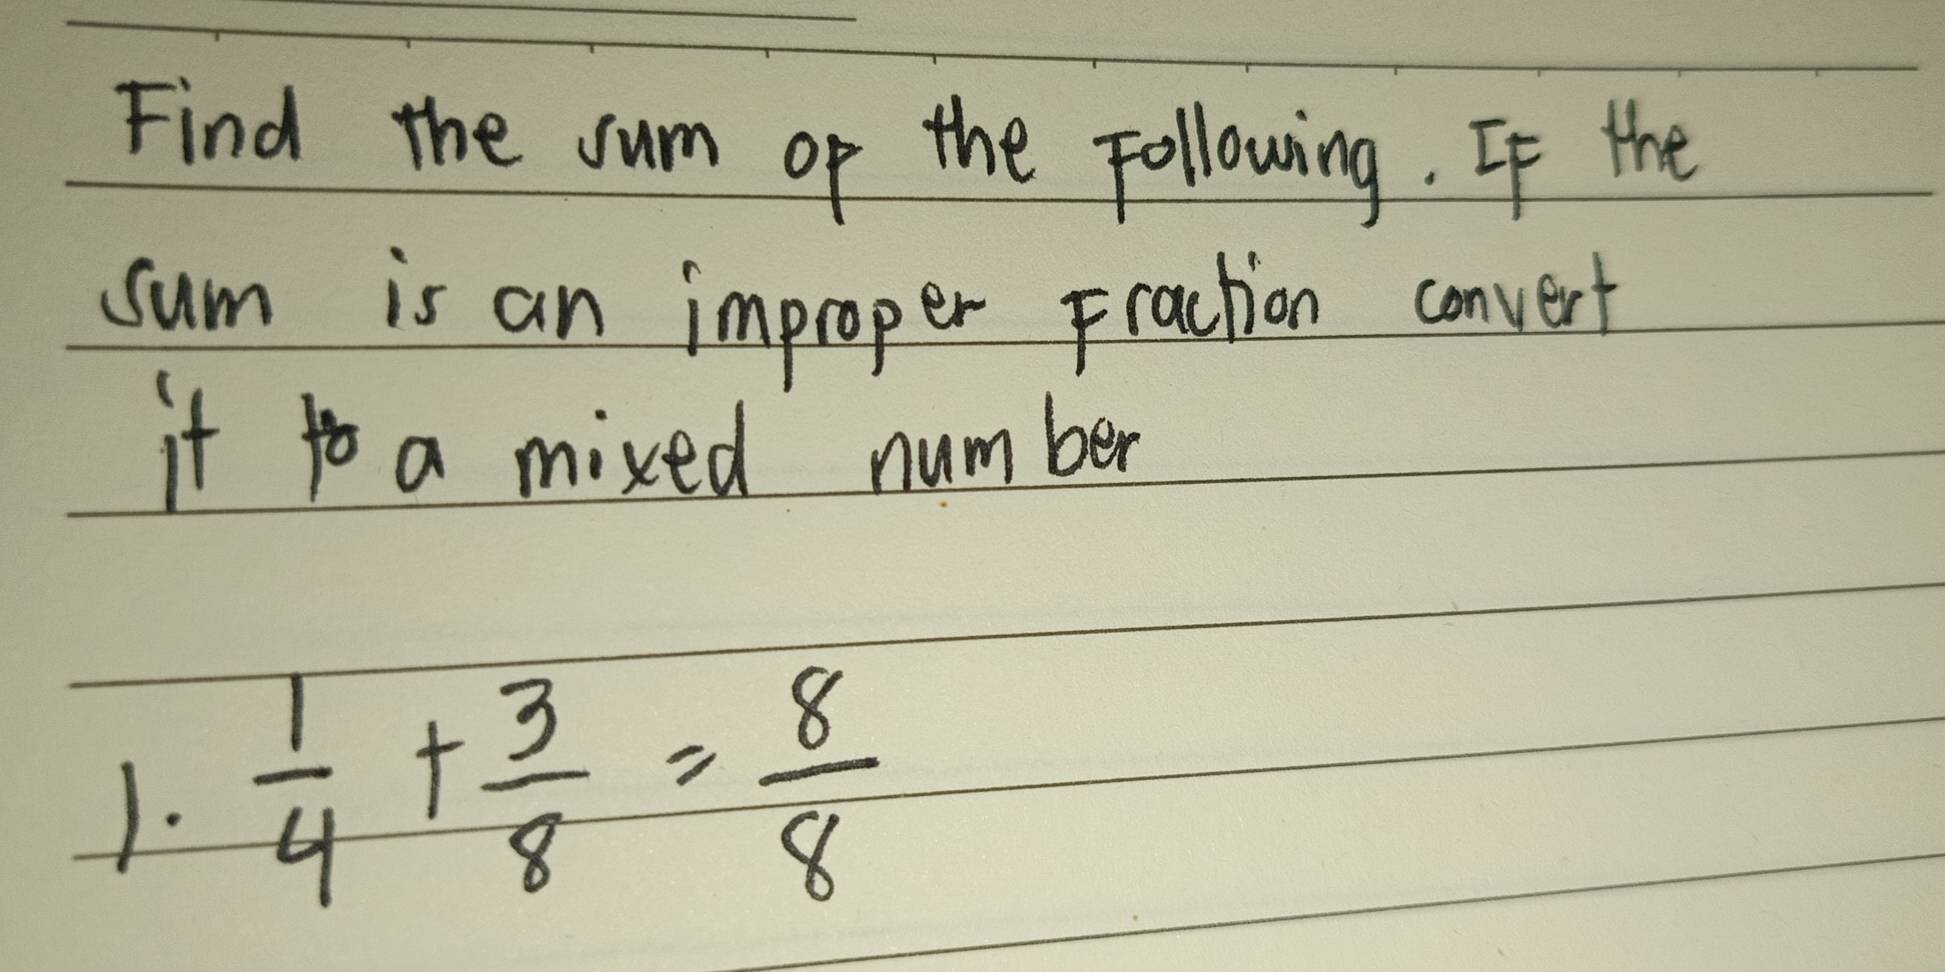 Find the sum of the Following. IF the
sum is an improper Fraction convert
it to a mixed number
1. 1/4 + 3/8 = 8/8